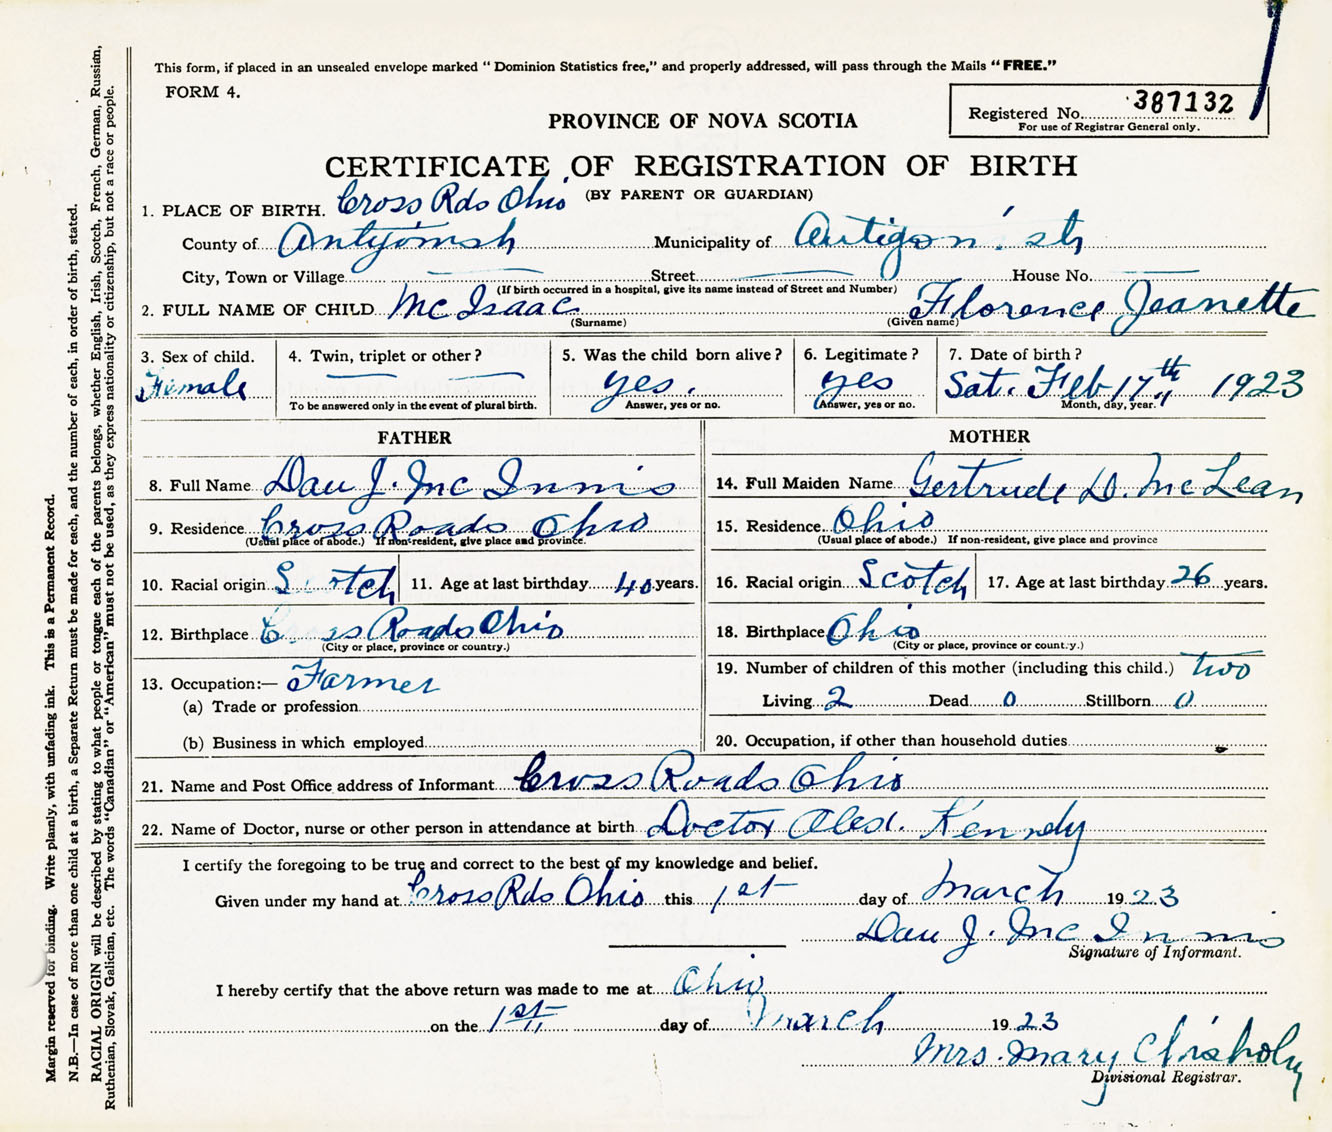 This form, if placed in an unsealed envelope marked "Dominion Statistics free," and properly addressed, will pass through the Mails "FREE."
FORM 4.
Registered No. 387132
For use of Registrar General only.
PROVINCE OF NOVA SCOTIA
CERTIFICATE OF REGISTRATION OF BIRTH
(BY PARENT OR GUARDIAN)
1. PLACE OF BIRTH. Cross Rds Ohio
County of Antigonish Municipality of Antigonish
City, Town or Village Street House No.
(If birth occurred in a hospital, give its name instead of Street and Number)
2. FULL NAME OF CHILD Mc Isaac Florence Jeanette
(Surname) (Given name)
3. Sex of child. 4. Twin, triplet or other? 5. Was the child born alive? 6. Legitimate? 7. Date of birth?
Female yes. yes Sat. Feb 17th 1923
To be answered only in the event of plural birth. Answer, yes or no. Answer, yes or no. Month, day, year.
FATHER MOTHER
8. Full Name Dan J. Mc Innis 14. Full Maiden Name Gertrude D. McLean
9. Residence Cross Roads Ohio 15. Residence Ohio
(Usual place of abode.) If non-resident, give place and province. (Usual place of abode.) If non-resident, give place and province
10. Racial origin Scotch 11. Age at last birthday 40 years. 16. Racial origin Scotch 17. Age at last birthday 26 years.
12. Birthplace Cross Roads Ohio 18. Birthplace Ohio
(City or place, province or country.) (City or place, province or country.)
13. Occupation:— Farmer 19. Number of children of this mother (including this child.) two
(a) Trade or profession Living 2 Dead 0 Stillborn 0
(b) Business in which employed 20. Occupation, if other than household duties
21. Name and Post Office address of Informant Cross Roads Ohio
22. Name of Doctor, nurse or other person in attendance at birth Doctor Alex. Kennedy
I certify the foregoing to be true and correct to the best of my knowledge and belief.
Given under my hand at Cross Rds Ohio this 1st day of March 1923
Dan J. Mc Innis
Signature of Informant.
I hereby certify that the above return was made to me at Ohio
on the 1st day of March 1923
Mrs. Mary Chisholm
Divisional Registrar.
Margin reserved for binding. Write plainly, with unfading ink. This is a Permanent Record.
N.B.—In case of more than one child at a birth, a Separate Return must be made for each, and the number of each, in order of birth, stated.
RACIAL ORIGIN will be described by stating to what people or tongue each of the parents belongs, whether English, Irish, Scotch, French, German, Russian,
Ruthenian, Slovak, Galician, etc. The words "Canadian" or "American" must not be used, as they express nationality or citizenship, but not a race or people.